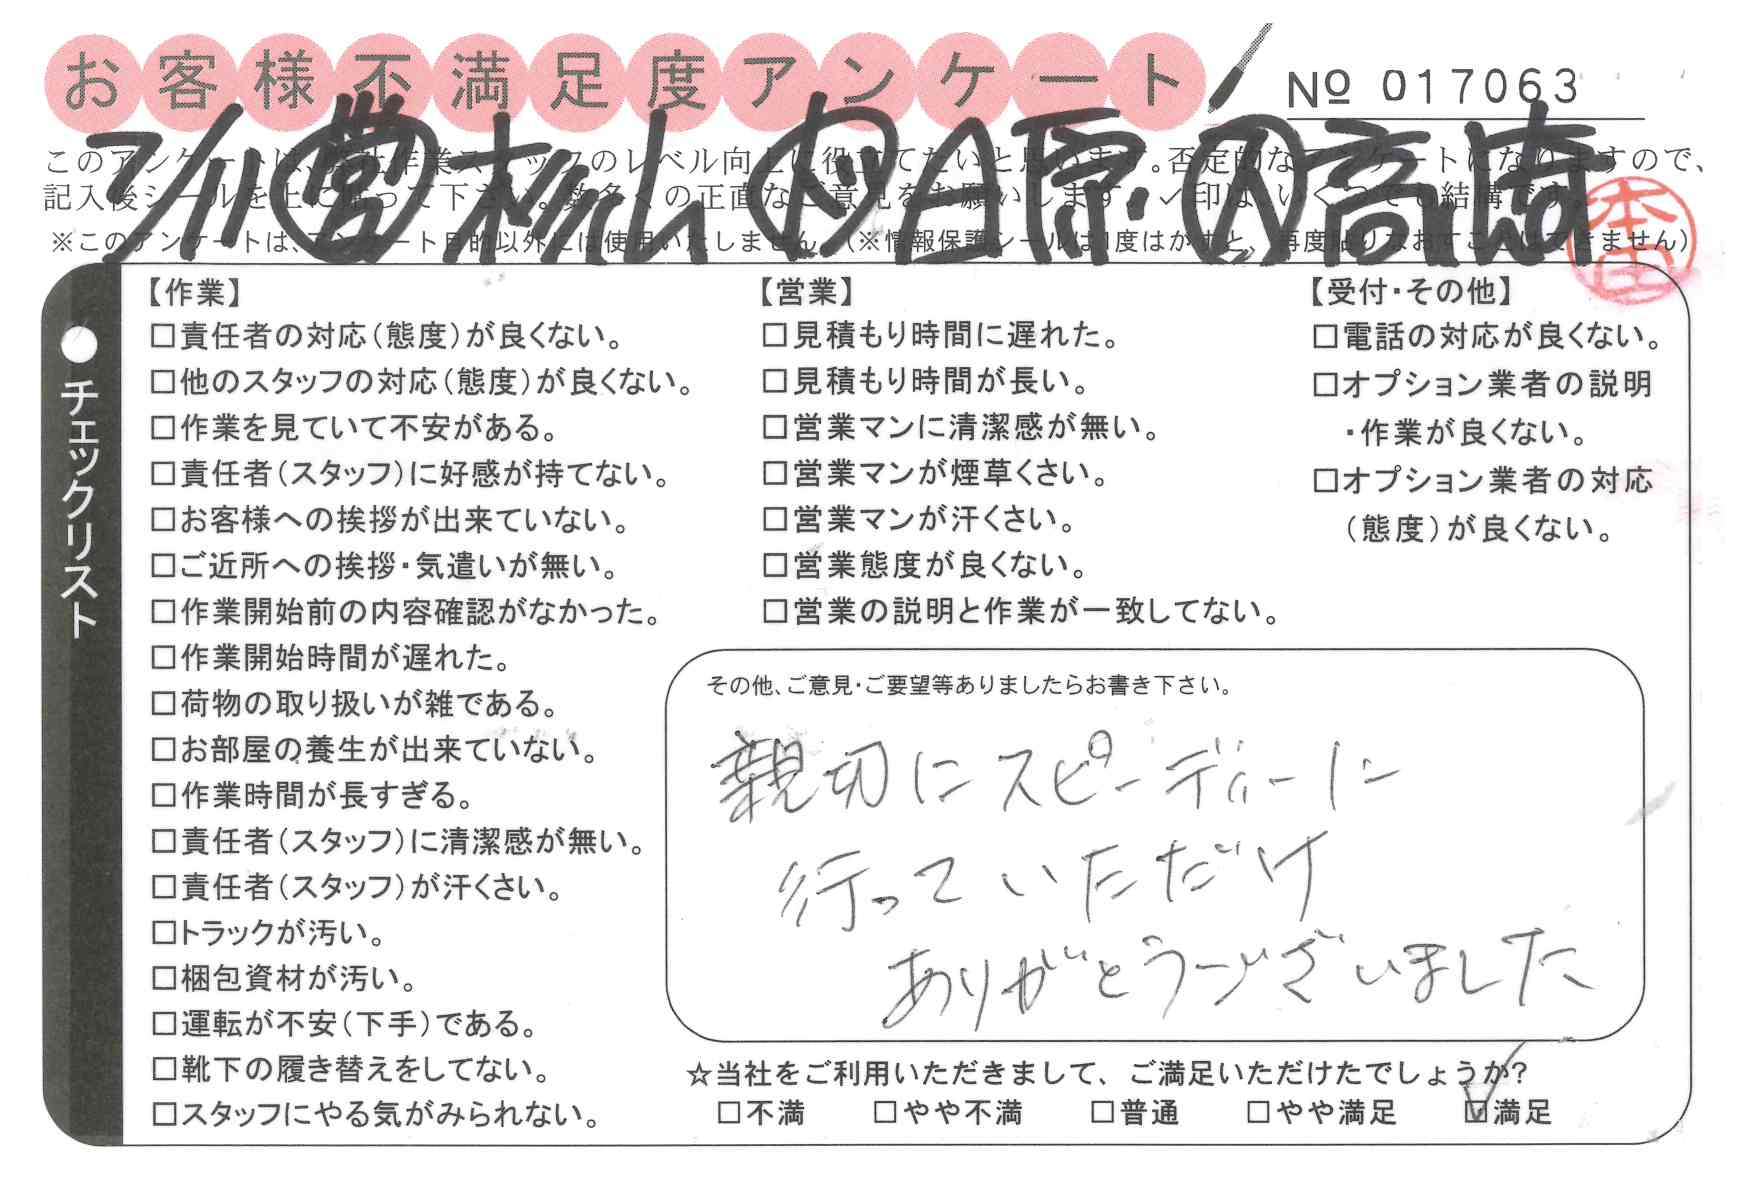 お客様不満足度アンケート
№ 017063
7/11 営 松山 内 A原 内 高崎
このアンケートは、
作業スタッフのレベル向上に役立てたいと思います。否定的なアンケートになりますので、
記入後シールを上に貼って下さい。数多くの正直なご意見をお願いします。✓印は、いくつでも結構です。
※このアンケートは、アンケート目的以外には使用いたしません。(※情報保護シールは1度はがすと、再度貼りなおすことはできません)
本田
●チェックリスト
【作業】
□責任者の対応(態度)が良くない。
□他のスタッフの対応(態度)が良くない。
□作業を見ていて不安がある。
□責任者(スタッフ)に好感が持てない。
□お客様への挨拶が出来ていない。
□ご近所への挨拶・気遣いが無い。
□作業開始前の内容確認がなかった。
□作業開始時間が遅れた。
□荷物の取り扱いが雑である。
□お部屋の養生が出来ていない。
□作業時間が長すぎる。
□責任者(スタッフ)に清潔感が無い。
□責任者(スタッフ)が汗くさい。
□トラックが汚い。
□梱包資材が汚い。
□運転が不安(下手)である。
□靴下の履き替えをしてない。
□スタッフにやる気がみられない。
【営業】
□見積もり時間に遅れた。
□見積もり時間が長い。
□営業マンに清潔感が無い。
□営業マンが煙草くさい。
□営業マンが汗くさい。
□営業態度が良くない。
□営業の説明と作業が一致してない。
【受付・その他】
□電話の対応が良くない。
□オプション業者の説明
・作業が良くない。
□オプション業者の対応
(態度)が良くない。
その他、ご意見・ご要望等ありましたらお書き下さい。
親切にスピーディーに
行っていただけ
ありがとうございました
☆当社をご利用いただきまして、ご満足いただけたでしょうか?
□不満 □やや不満 □普通 □やや満足 ☑満足